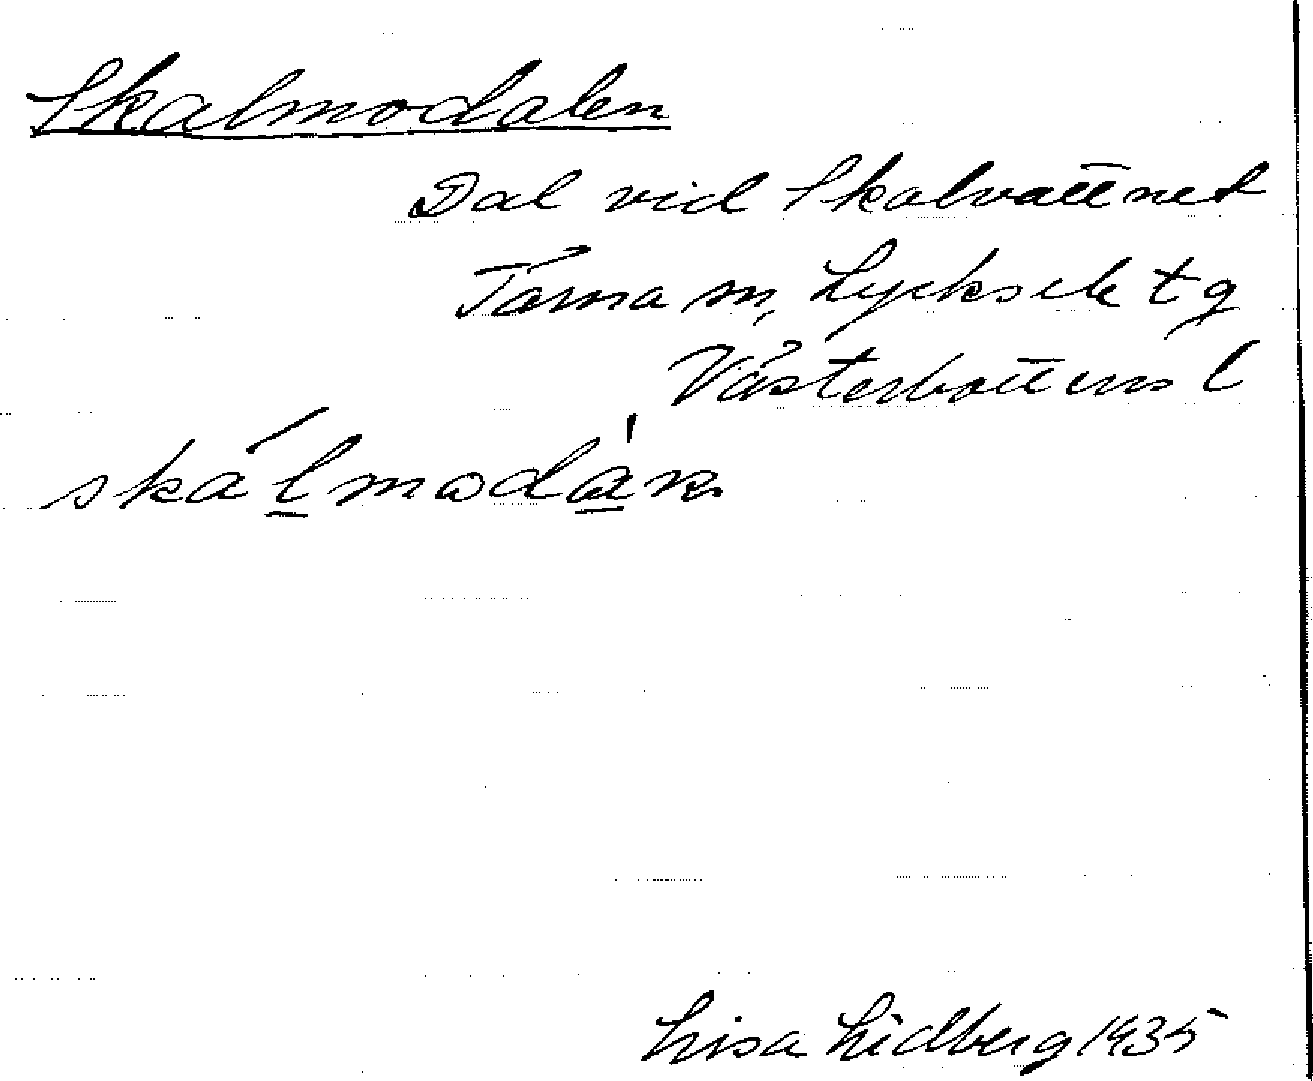 Skalmodalen
Dal vid Skalvattnet
Tärna sn, Lycksele tg
Västerbottens l
Lisa Lidberg 1935